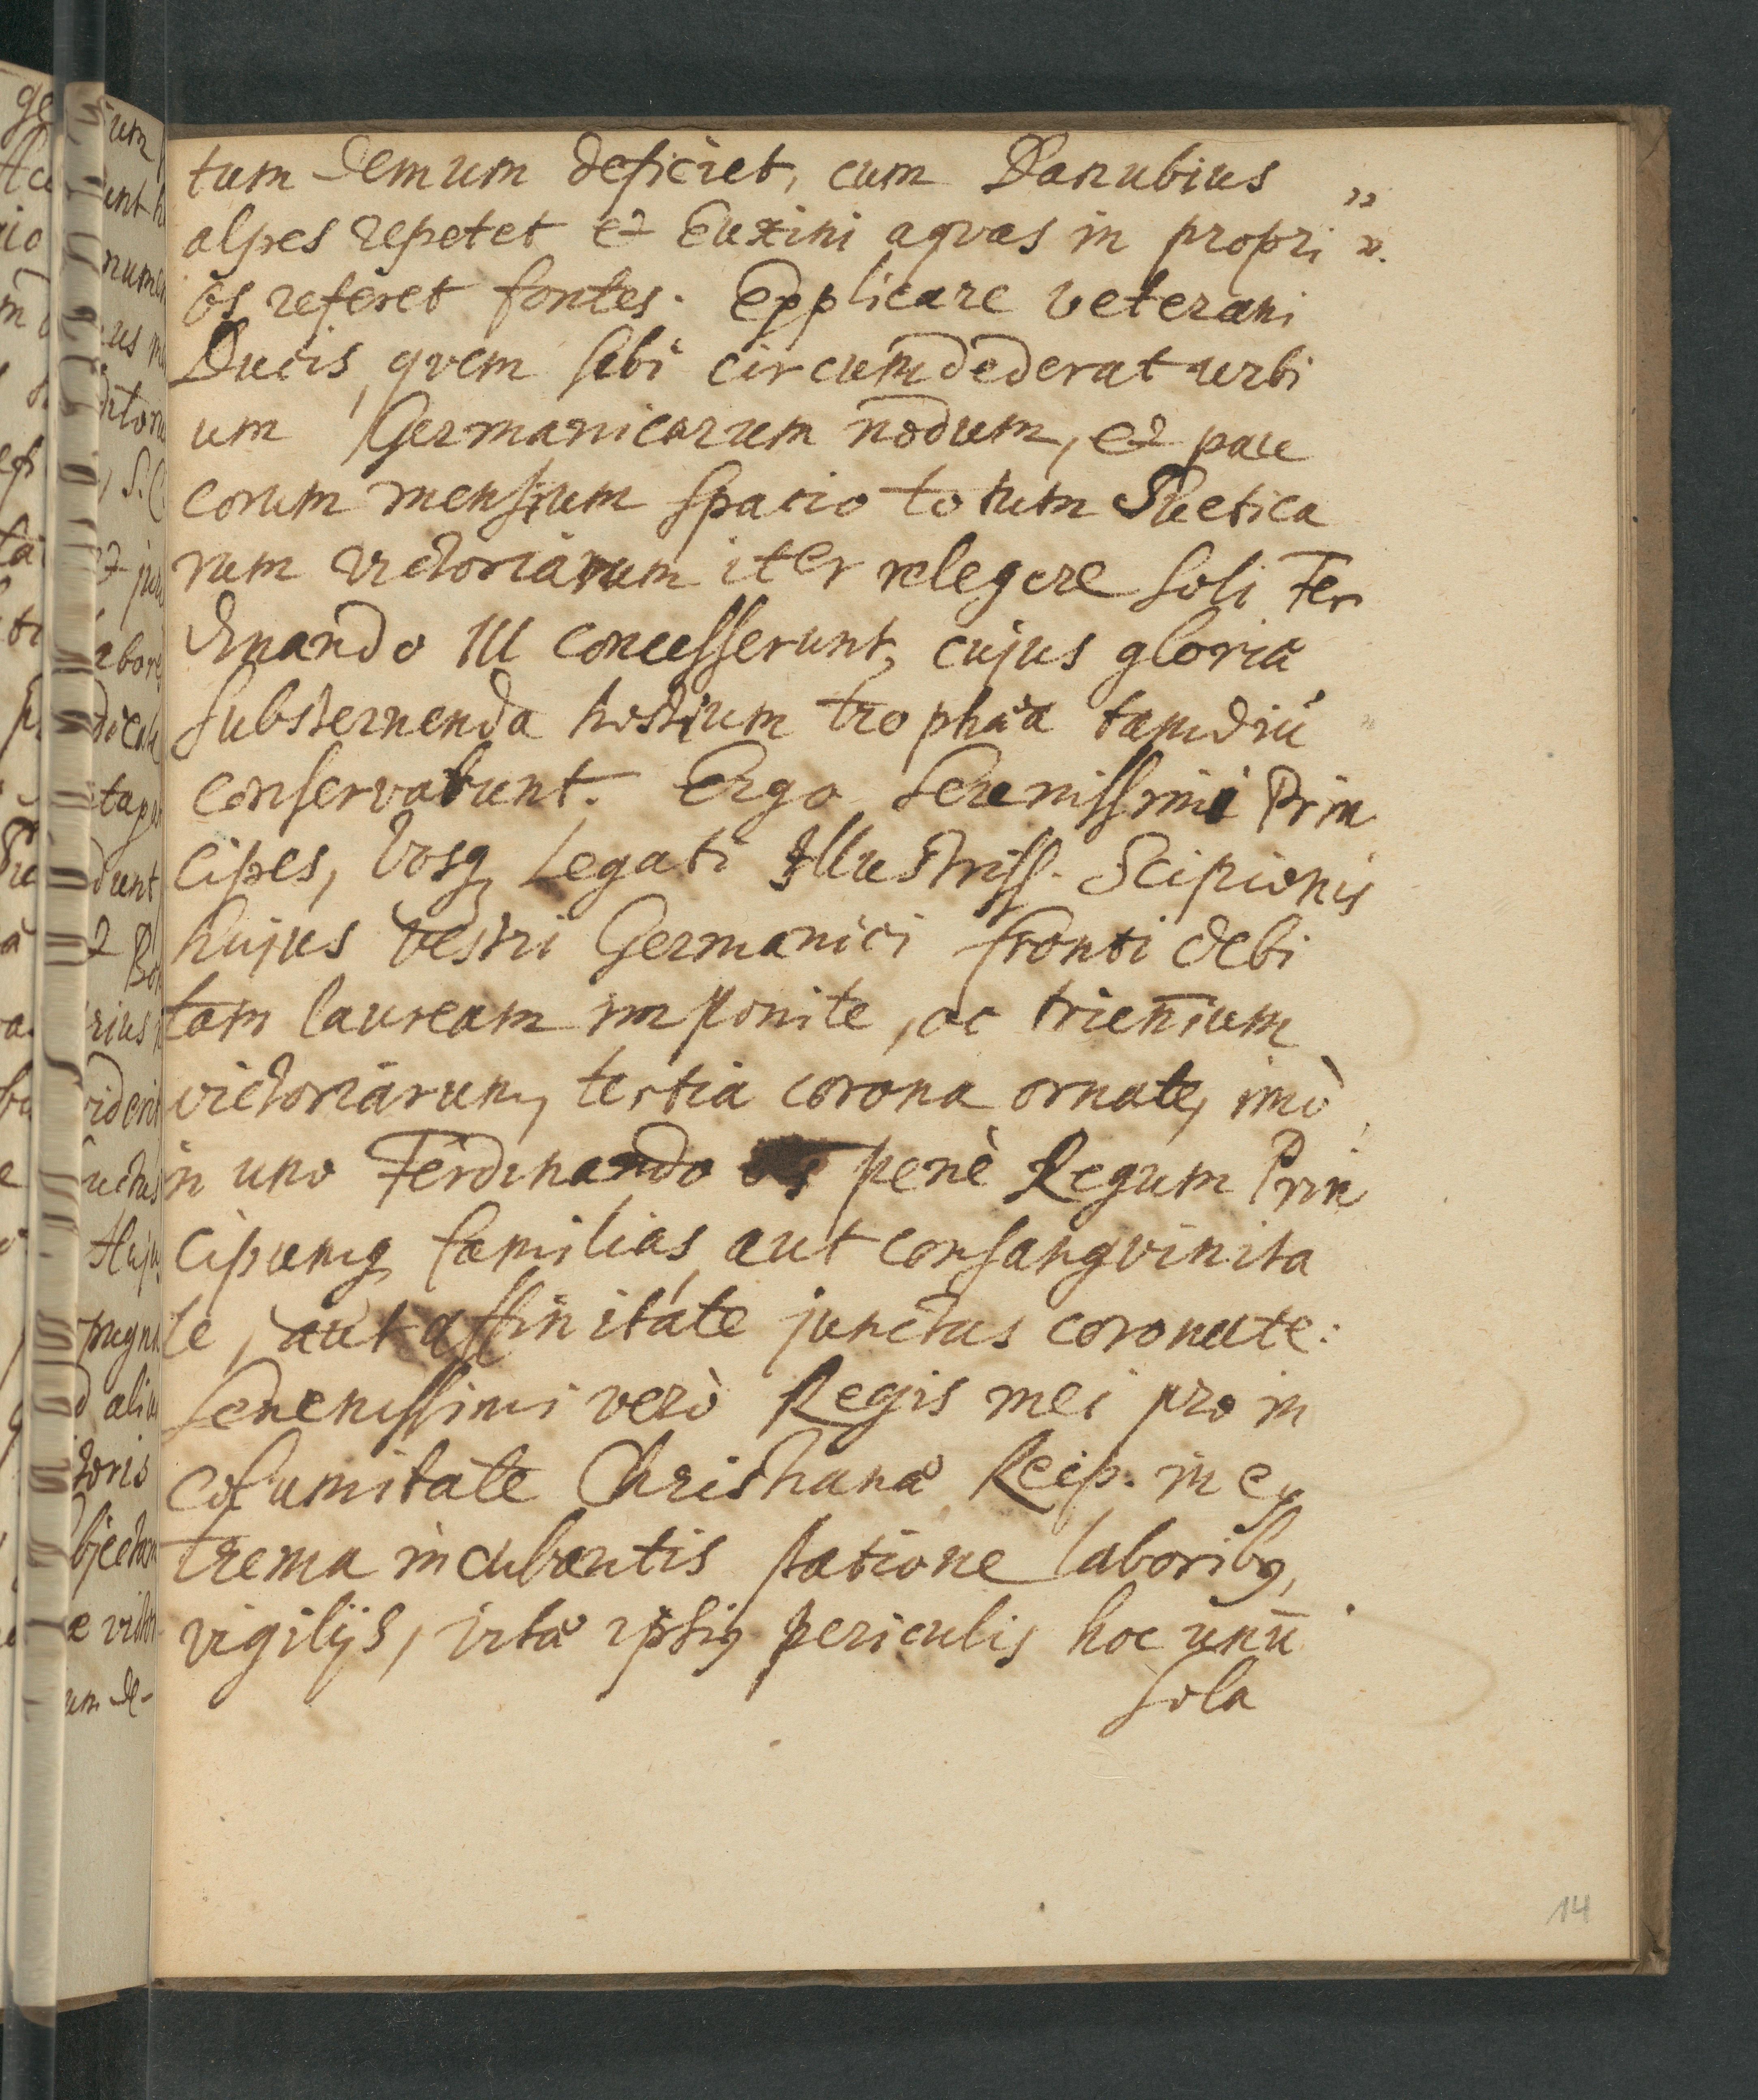 tum demum deficiet, cum Danubius „
alpes repetet et Euxini aqvas in propri „.
os referet fontes. Explicare veterani
Ducis, qvem sibi circumdederat urbi
um Germanicarum nodum, et pau
corum mensium spatio totum Suetica
rum victoriarum iter relegere soli Fer
dinando III concesserunt, cujus gloriæ
substernenda hostium trophæa tamdiu
conservabunt. Ergo Serenissimi Prin
cipes, Vosq Legati Illustriss. Scipionis
hujus vestri Germanici fronti debi
tam lauream imponite, ac trien̄ium
victoriarum, tertia corona ornate, imò
in uno Ferdinando penè Regum Prin
cipumq familias, aut consangvinita
te, aut affinitate junctas coronate:
Serenissimi verò Regis mei pro in
columitate Christianæ Reip. in ex
trema incubantis statione laboribq,
vigilijs, vitæ ipsiq periculis hoc unū
sola
14